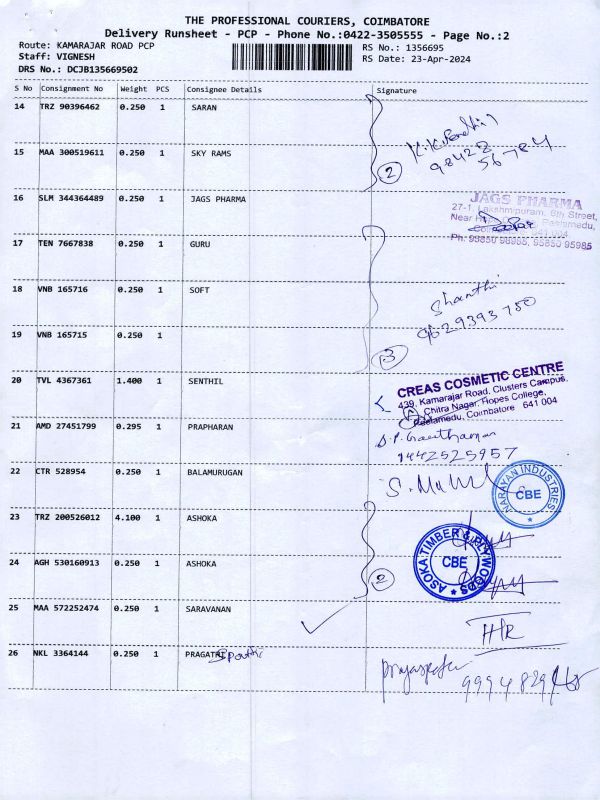 THE PROFESSIONAL COURIERS, COIMBATORE
Delivery Runsheet - PCP - Phone No.:0422-3505555 - Page No.:2
Route: KAMARAJAR ROAD PCP
RS No.: 1356695
Staff: VIGNESH
RS Date: 23-Apr-2024
DRS No.: DCJB135669502
S No Consignment No Weight PCS Consignee Details Signature
14 TRZ 90396462 0.250 1 SARAN
98422 56784
15 MAA 300519611 0.250 1 SKY RAMS
2
16 SLM 344364489 0.250 1 JAGS PHARMA
JAGS PHARMA
27-1, Lakshmipuram, 6th Street,
Near
Peelamedu,
Ph: 95850 98985, 95850 95985
17 TEN 7667838 0.250 1 GURU
18 VNB 165716 0.250 1 SOFT
Shanthi
9629393750
19 VNB 165715 0.250 1
3
20 TVL 4367361 1.400 1 SENTHIL
CREAS COSMETIC CENTRE
439, Kamarajar Road, Clusters Campus,
Chitra Nagar, Hopes College,
Peelamedu, Coimbatore 641 004
21 AMD 27451799 0.295 1 PRAPHARAN
9442525957
22 CTR 528954 0.250 1 BALAMURUGAN
NARAYAN INDUSTRIES
CBE
23 TRZ 200526012 4.100 1 ASHOKA
ASOKA TIMBER & PLYWOODS
CBE
24 AGH 530160913 0.250 1 ASHOKA
2
25 MAA 572252474 0.250 1 SARAVANAN
26 NKL 3364144 0.250 1 PRAGATHI